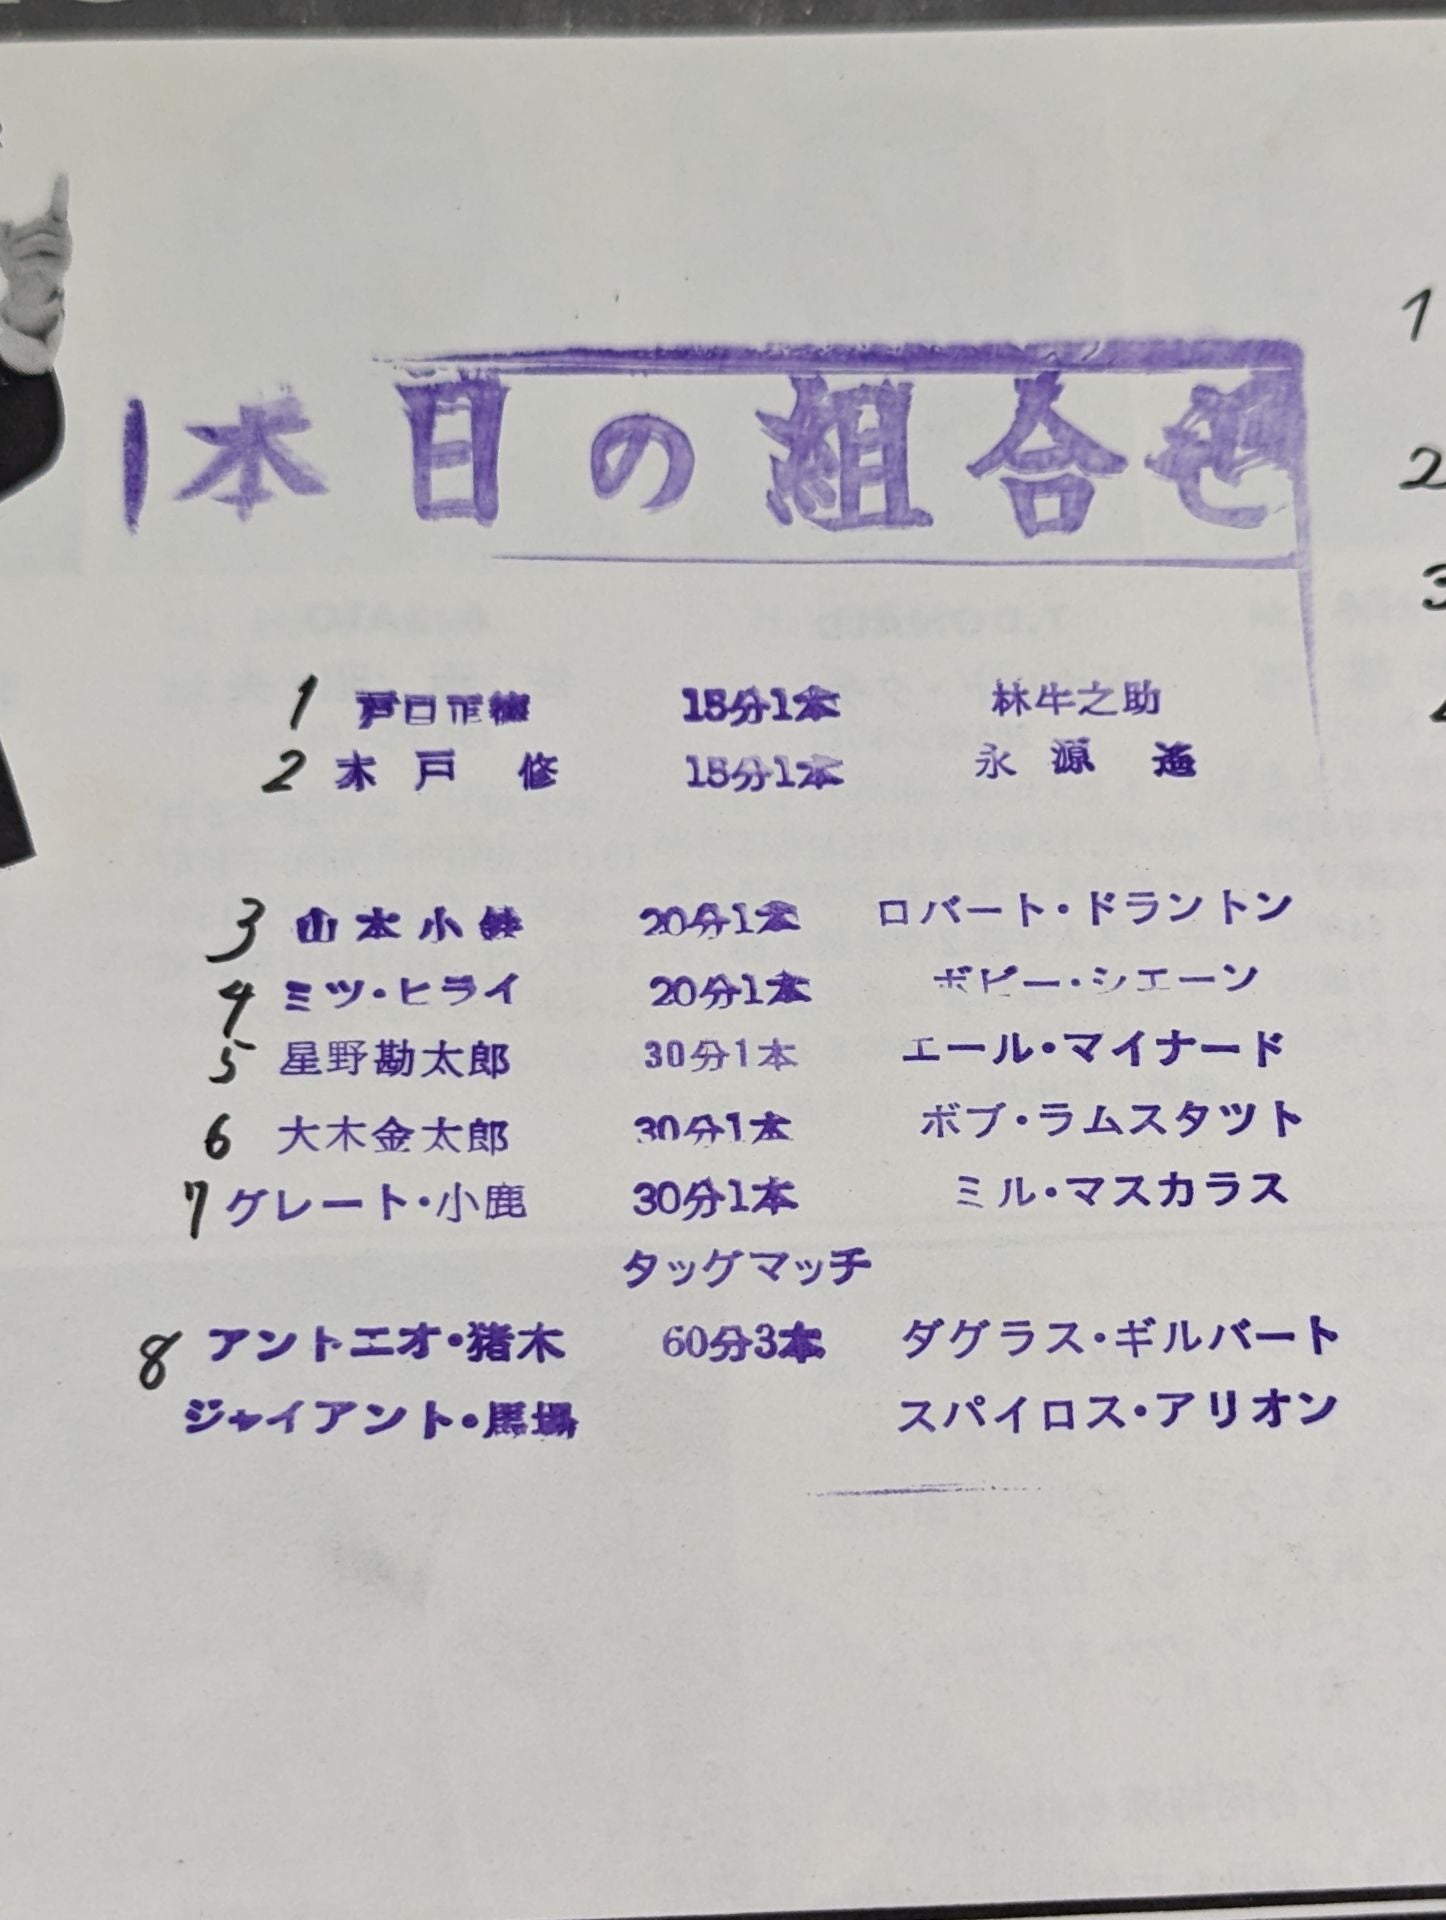 本日の組合せ
1 戸口正徳 15分1本 林牛之助
2 木戸修 15分1本 永源遥
3 山本小鉄 20分1本 ロバート・ドラントン
4 ミツ・ヒライ 20分1本 ボビー・シエーン
5 星野勘太郎 30分1本 エール・マイナード
6 大木金太郎 30分1本 ボブ・ラムスタツト
7 グレート・小鹿 30分1本 ミル・マスカラス
タッグマッチ
8 アントニオ・猪木 60分3本 ダグラス・ギルバート
ジャイアント・馬場 スパイロス・アリオン
1
2
3
4